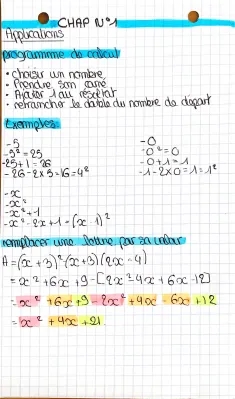 CHAP N°1
Applications
programme de calcul
• choisir un nombre
• Prendre son carré
• Ajouter 1 au résultat
• retrancher le double du nombre de départ
Exemples
- 5
- 5² = 25
- 25 + 1 = 26
- 26 - 2 x 5 = 16 = 4²
- 0
- 0² = 0
- 0 + 1 = 1
- 1 - 2 x 0 = 1 = 1²
- x
- x²
- x² + 1
- x² - 2x + 1 = (x - 1)²
remplacer une lettre par sa valeur
A = (x + 3)² - (x + 3)(2x - 4)
= x² + 6x + 9 - [2x² - 4x + 6x - 12]
= x² + 6x + 9 - 2x² + 4x - 6x + 12
= x² + 4x + 21